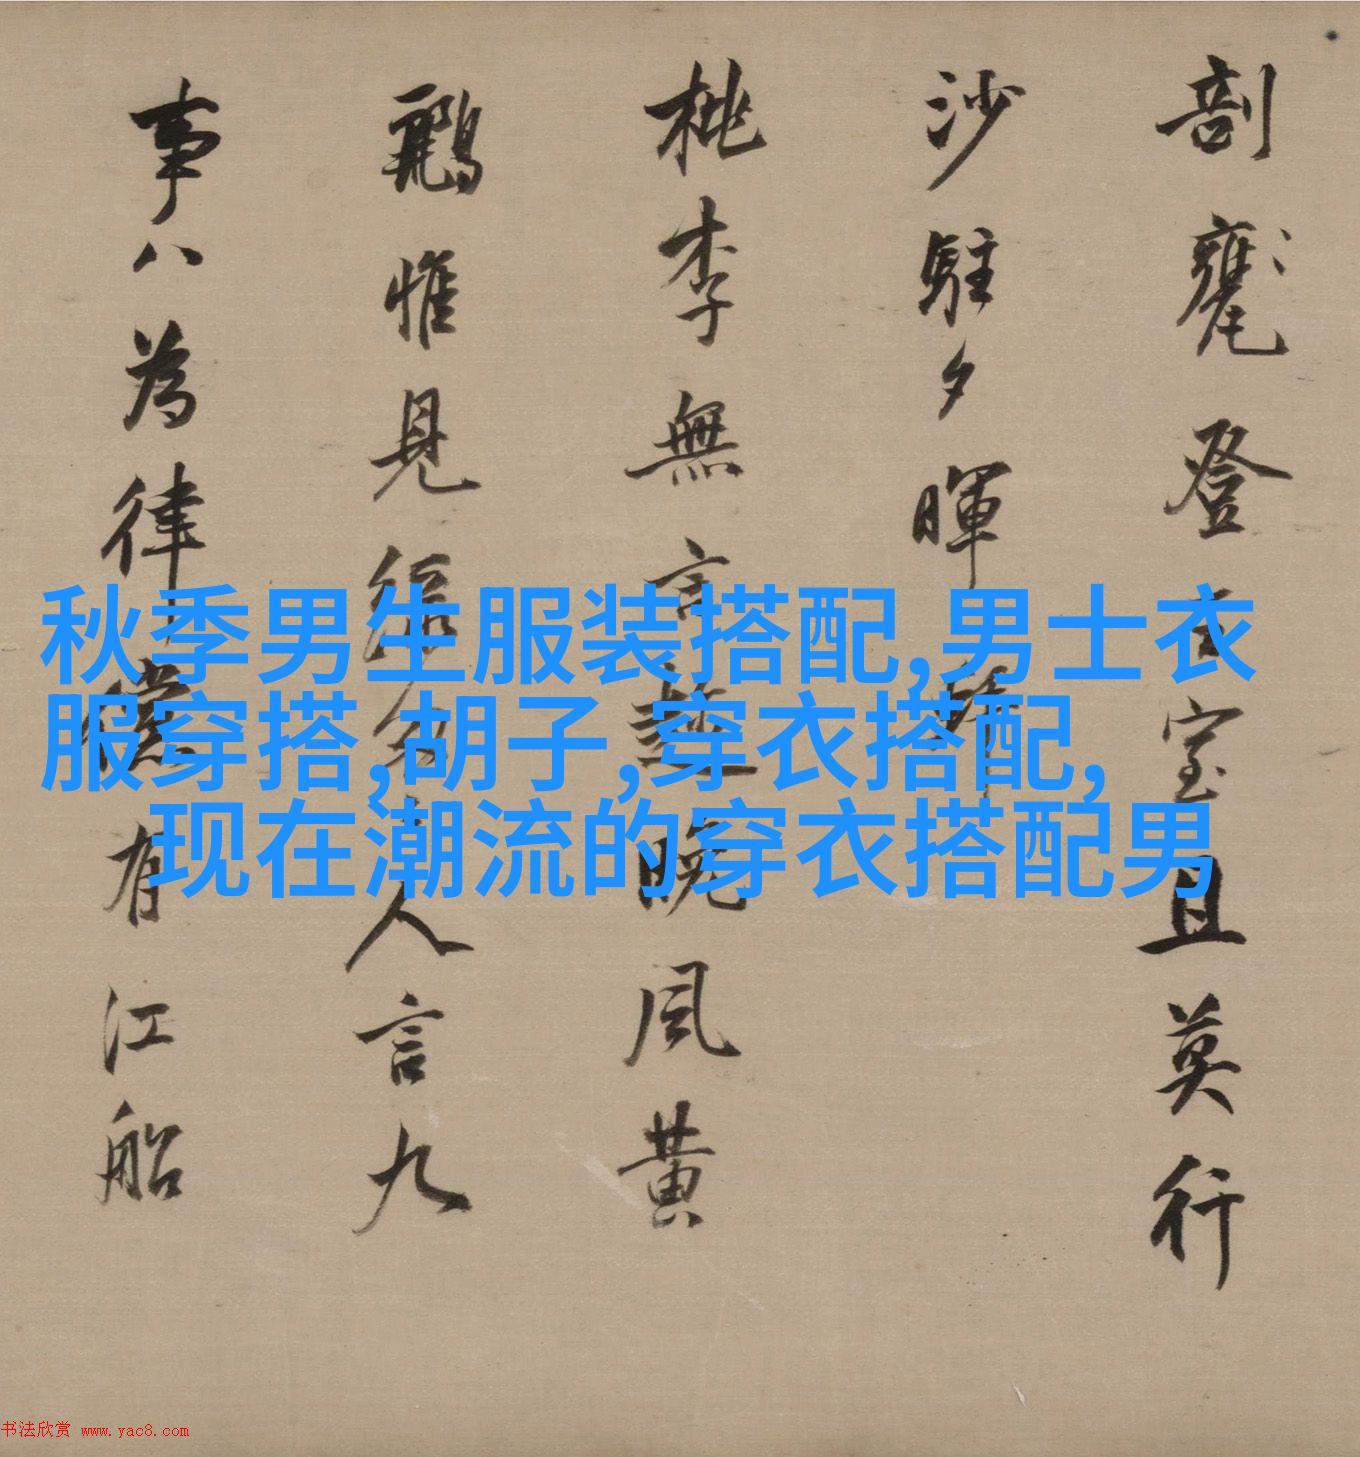 剖甕登室且莫行
沙駐夕暉
桃李無言晚風黃
鸝惟見綠人言九
事八為律儻有江船
秋季男生服装搭配,男士衣
服穿搭,胡子,穿衣搭配,
现在潮流的穿衣搭配男
书法欣赏 www.yac8.com